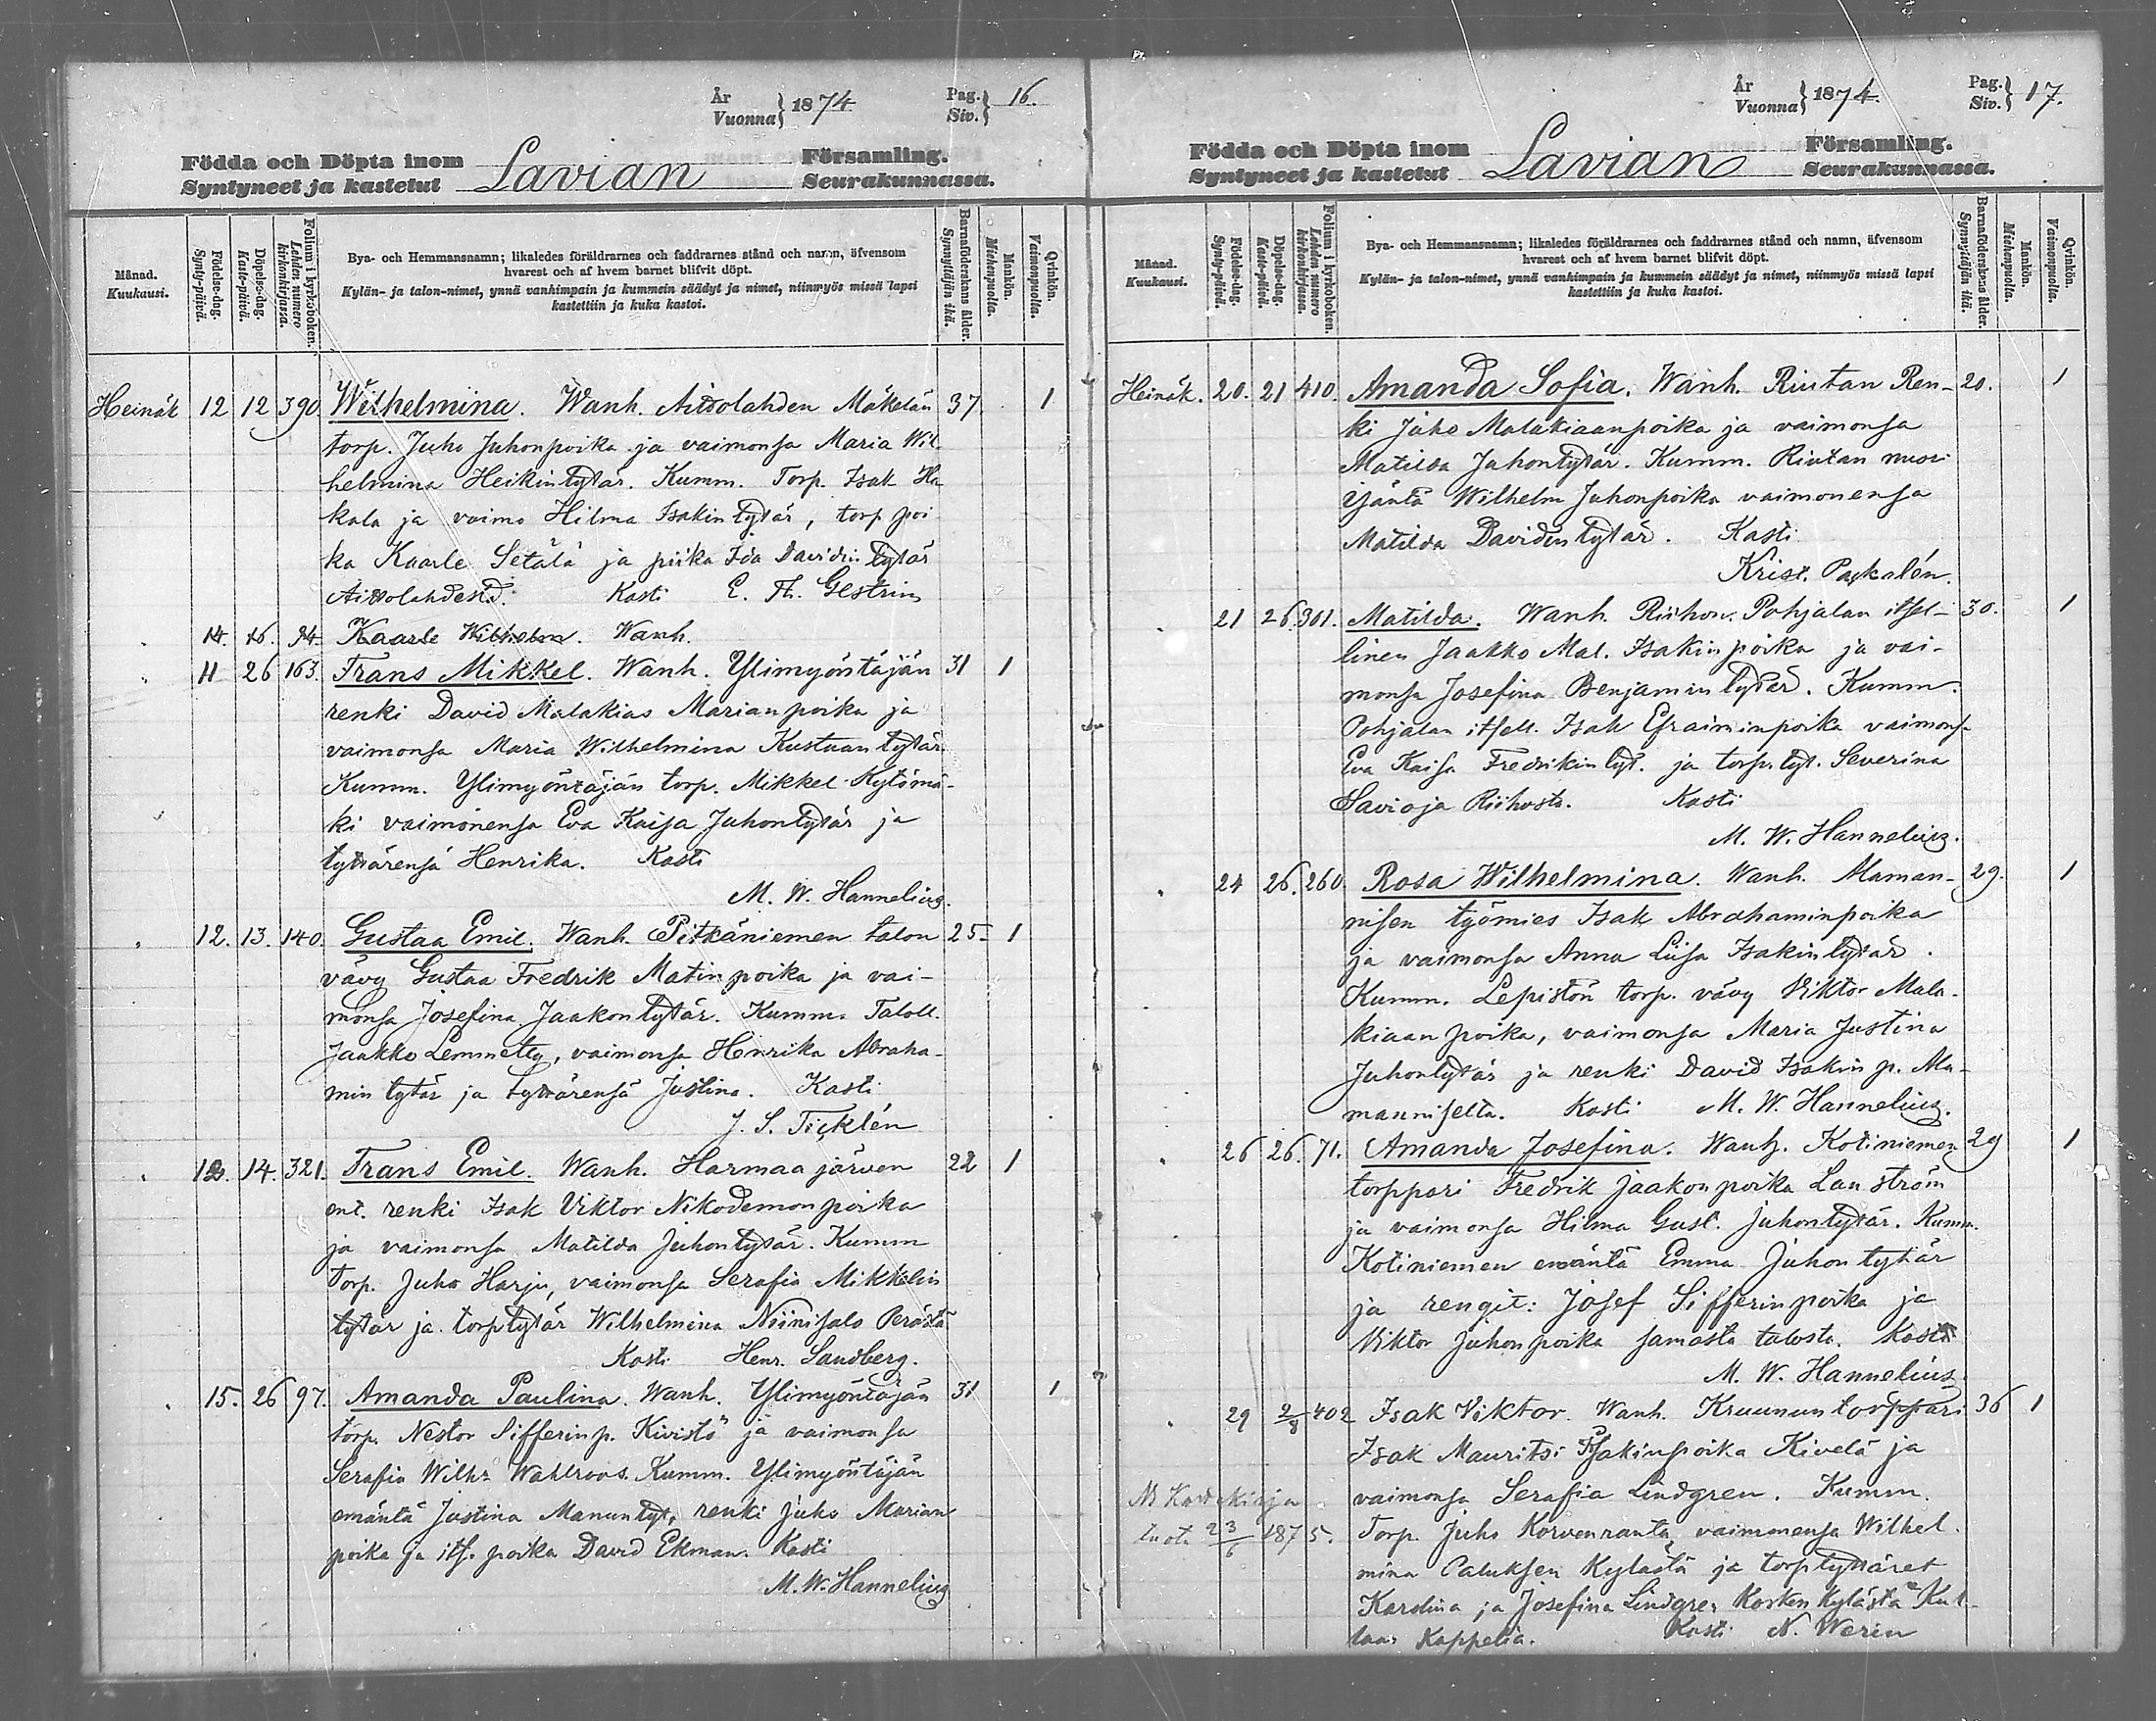 År
Vuonna } 1874
Pag.
Siv. } 16.
Födda och Döpta inom Lavian Församling.
Syntyneet ja kastetut Seurakunnassa.
Månad.
Kuukausi.
Födelse-dag.
Synty-päivä.
Döpelse-dag.
Kaste-päivä.
Folium i kyrkoboken.
Lehden numero kirkonkirjassa.
Bya- och Hemmansnamn; likaledes föräldrarnes och faddrarnes stånd och namn, äfvensom
hvarest och af hvem barnet blifvit döpt.
Kylän- ja talon-nimet, ynnä vanhimpain ja kummein säädyt ja nimet, niinmyös missä lapsi
kastettiin ja kuka kastoi.
Barnaföderskans ålder.
Synnyttäjän ikä.
Mankön.
Miehenpuolia.
Qvinkön.
Vaimonpuolia.
Heinäk 12 12 390 Wilhelmina. Wanh. Aittolahden Mäkelän 37 1
torp. Juho Juhonpoika ja vaimonsa Maria Wil
helmina Heikintytär. Kumm. Torp. Isak Ha
kala ja vaimo Hilma Isakintytär, torp poi
ka Kaarle Setälä ja piika Ida Davidin tytär
Aittolahdesta. Kasti E. Th. Gestrin
14. 16. 94 Kaarle Wilhelm. Wanh.
11 26 163. Frans Mikkel. Wanh. Ylimyöntäjän 31 1
renki David Malakias Marianpoika ja
vaimonsa Maria Wilhelmina Kustaan tytär
Kumm. Ylimyöntäjän torp. Mikkel Kytömä-
ki vaimonensa Eva Kaisa Juhontytär ja
tyttärensä Henrika. Kasti
M. W. Hannelius.
12. 13. 140. Gustaa Emil. Wanh. Pitkäniemen talon 25- 1
vävy Gustaa Fredrik Matinpoika ja vai-
monsa Josefina Jaakontytär. Kumm. Taloll.
Jaakko Lemmetty, vaimonsa Henrika Abraha-
min tytär ja tyttärensä Justina. Kasti
J. S. Ticklén
12. 14. 321. Frans Emil. Wanh. Harmaajärven 22 1
ent. renki Isak Viktor Nikodemonpoika
ja vaimonsa Matilda Juhontytär. Kumm
Torp. Juho Harju, vaimonsa Serafia Mikkelin
tytär ja torptytär Wilhelmina Niinisalo Perästä
Kasti Henr. Sandberg.
15. 26 97. Amanda Paulina. Wanh. Ylimyöntäjän 31 1
torp. Nestor Sifferinp. Kivistö ja vaimonsa
Serafia Wilh:a Wahlroos. Kumm. Ylimyöntäjän
emäntä Justina Manuntyt, renki Juho Marian
poika ja its. poika David Ekman. Kasti
M. W. Hannelius
År
Vuonna } 1874.
Pag.
Siv. } 17.
Födda och Döpta inom Lavian Församling.
Syntyneet ja kastetut Seurakunnassa.
Månad.
Kuukausi.
Födelse-dag.
Synty-päivä.
Döpelse-dag.
Kaste-päivä.
Folium i kyrkoboken.
Lehden numero kirkonkirjassa.
Bya- och Hemmansnamn; likaledes föräldrarnes och faddrarnes stånd och namn, äfvensom
hvarest och af hvem barnet blifvit döpt.
Kylän- ja talon-nimet, ynnä vanhimpain ja kummein säädyt ja nimet, niinmyös missä lapsi
kastettiin ja kuka kastoi.
Barnaföderskans ålder.
Synnyttäjän ikä.
Mankön.
Miehenpuolia.
Qvinkön.
Vaimonpuolia.
Heinäk. 20. 21 410. Amanda Sofia. Wanh. Riutan Ren- 20. 1
ki Juho Malakiaanpoika ja vaimonsa
Matilda Juhontytär. Kumm. Riutan nuori
isäntä Wilhelm Juhonpoika vaimonensa
Matilda Davidintytär. Kasti
Krist. Packalén.
21 26. 301. Matilda. Wanh. Riihon Pohjalan itsel- 30. 1
linen Jaakko Mal. Isakinpoika ja vai-
monsa Josefina Benjamintytär. Kumm.
Pohjalan itsell. Isak Efraiminpoika vaimons.
Eva Kaisa Fredrikintyt. ja torp. tyt. Severina
Savioja Riihosta. Kasti
M. W. Hannelius.
24 26. 260. Rosa Wilhelmina. Wanh. Maman- 29. 1
nisen työmies Isak Abrahaminpoika
ja vaimonsa Anna Liisa Isakintytär.
Kumm. Lepistön torp. vävy Viktor Mala-
kiaanpoika, vaimonsa Maria Justina
Juhontytär ja renki David Isakin p. Ma-
manniselta. Kasti M. W. Hannelius.
26 26. 71. Amanda Josefina. Wanh. Kotiniemen 29 1
torppari Fredrik Jaakonpoika Lanström
ja vaimonsa Hilma Gust. Juhontytär. Kumm.
Kotiniemen emäntä Emma Juhontytär
ja rengit: Josef Sifferinpoika ja
Viktor Juhonpoika samasta talosta. Kasti
M. W. Hannelius
29 2/8 402 Isak Viktor. Wanh. Kruunun torppari 36 1
Isak Mauritsi Isakinpoika Kivelä ja
vaimonsa Serafia Lindgren. Kumm.
Torp. Juho Korvenranta vaimonensa Wilhel
mina Paluksen Kylästä ja torptyttäret
Karolina ja Josefina Lindgren Kosken kylästä Kul-
laan Kappelia. Kasti N. Werin
tuotu 23/6 1875.